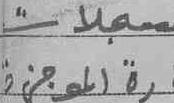 سجلات
رة الموجزة